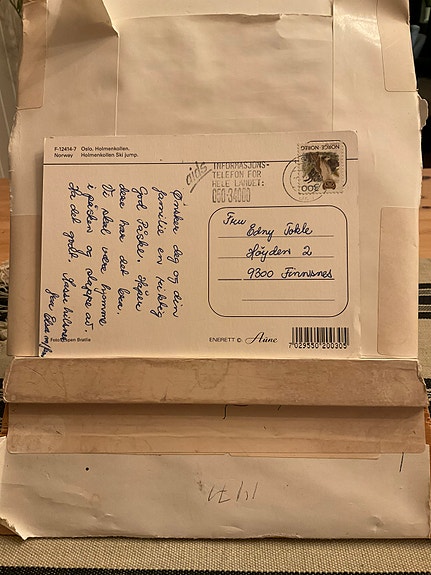 F-12414-7 Oslo. Holmenkollen.
Norway Holmenkollen Ski jump.
aids
INFORMASJONS-
TELEFON FOR
HELE LANDET:
050-34000
NORGE NOREG
300
Ønsker deg og din
familie en riktig
God Påske. Håper
dere har det bra.
Vi skal være hjemme
i påsken og slappe av.
Ha det godt. Masse hilsner
fra Elsa m/fam
Fru
Edny Tokle
Høyden 2
9300 Finnsnes
Foto: Espen Bratlie
ENERETT © Aune
7 029550 200305